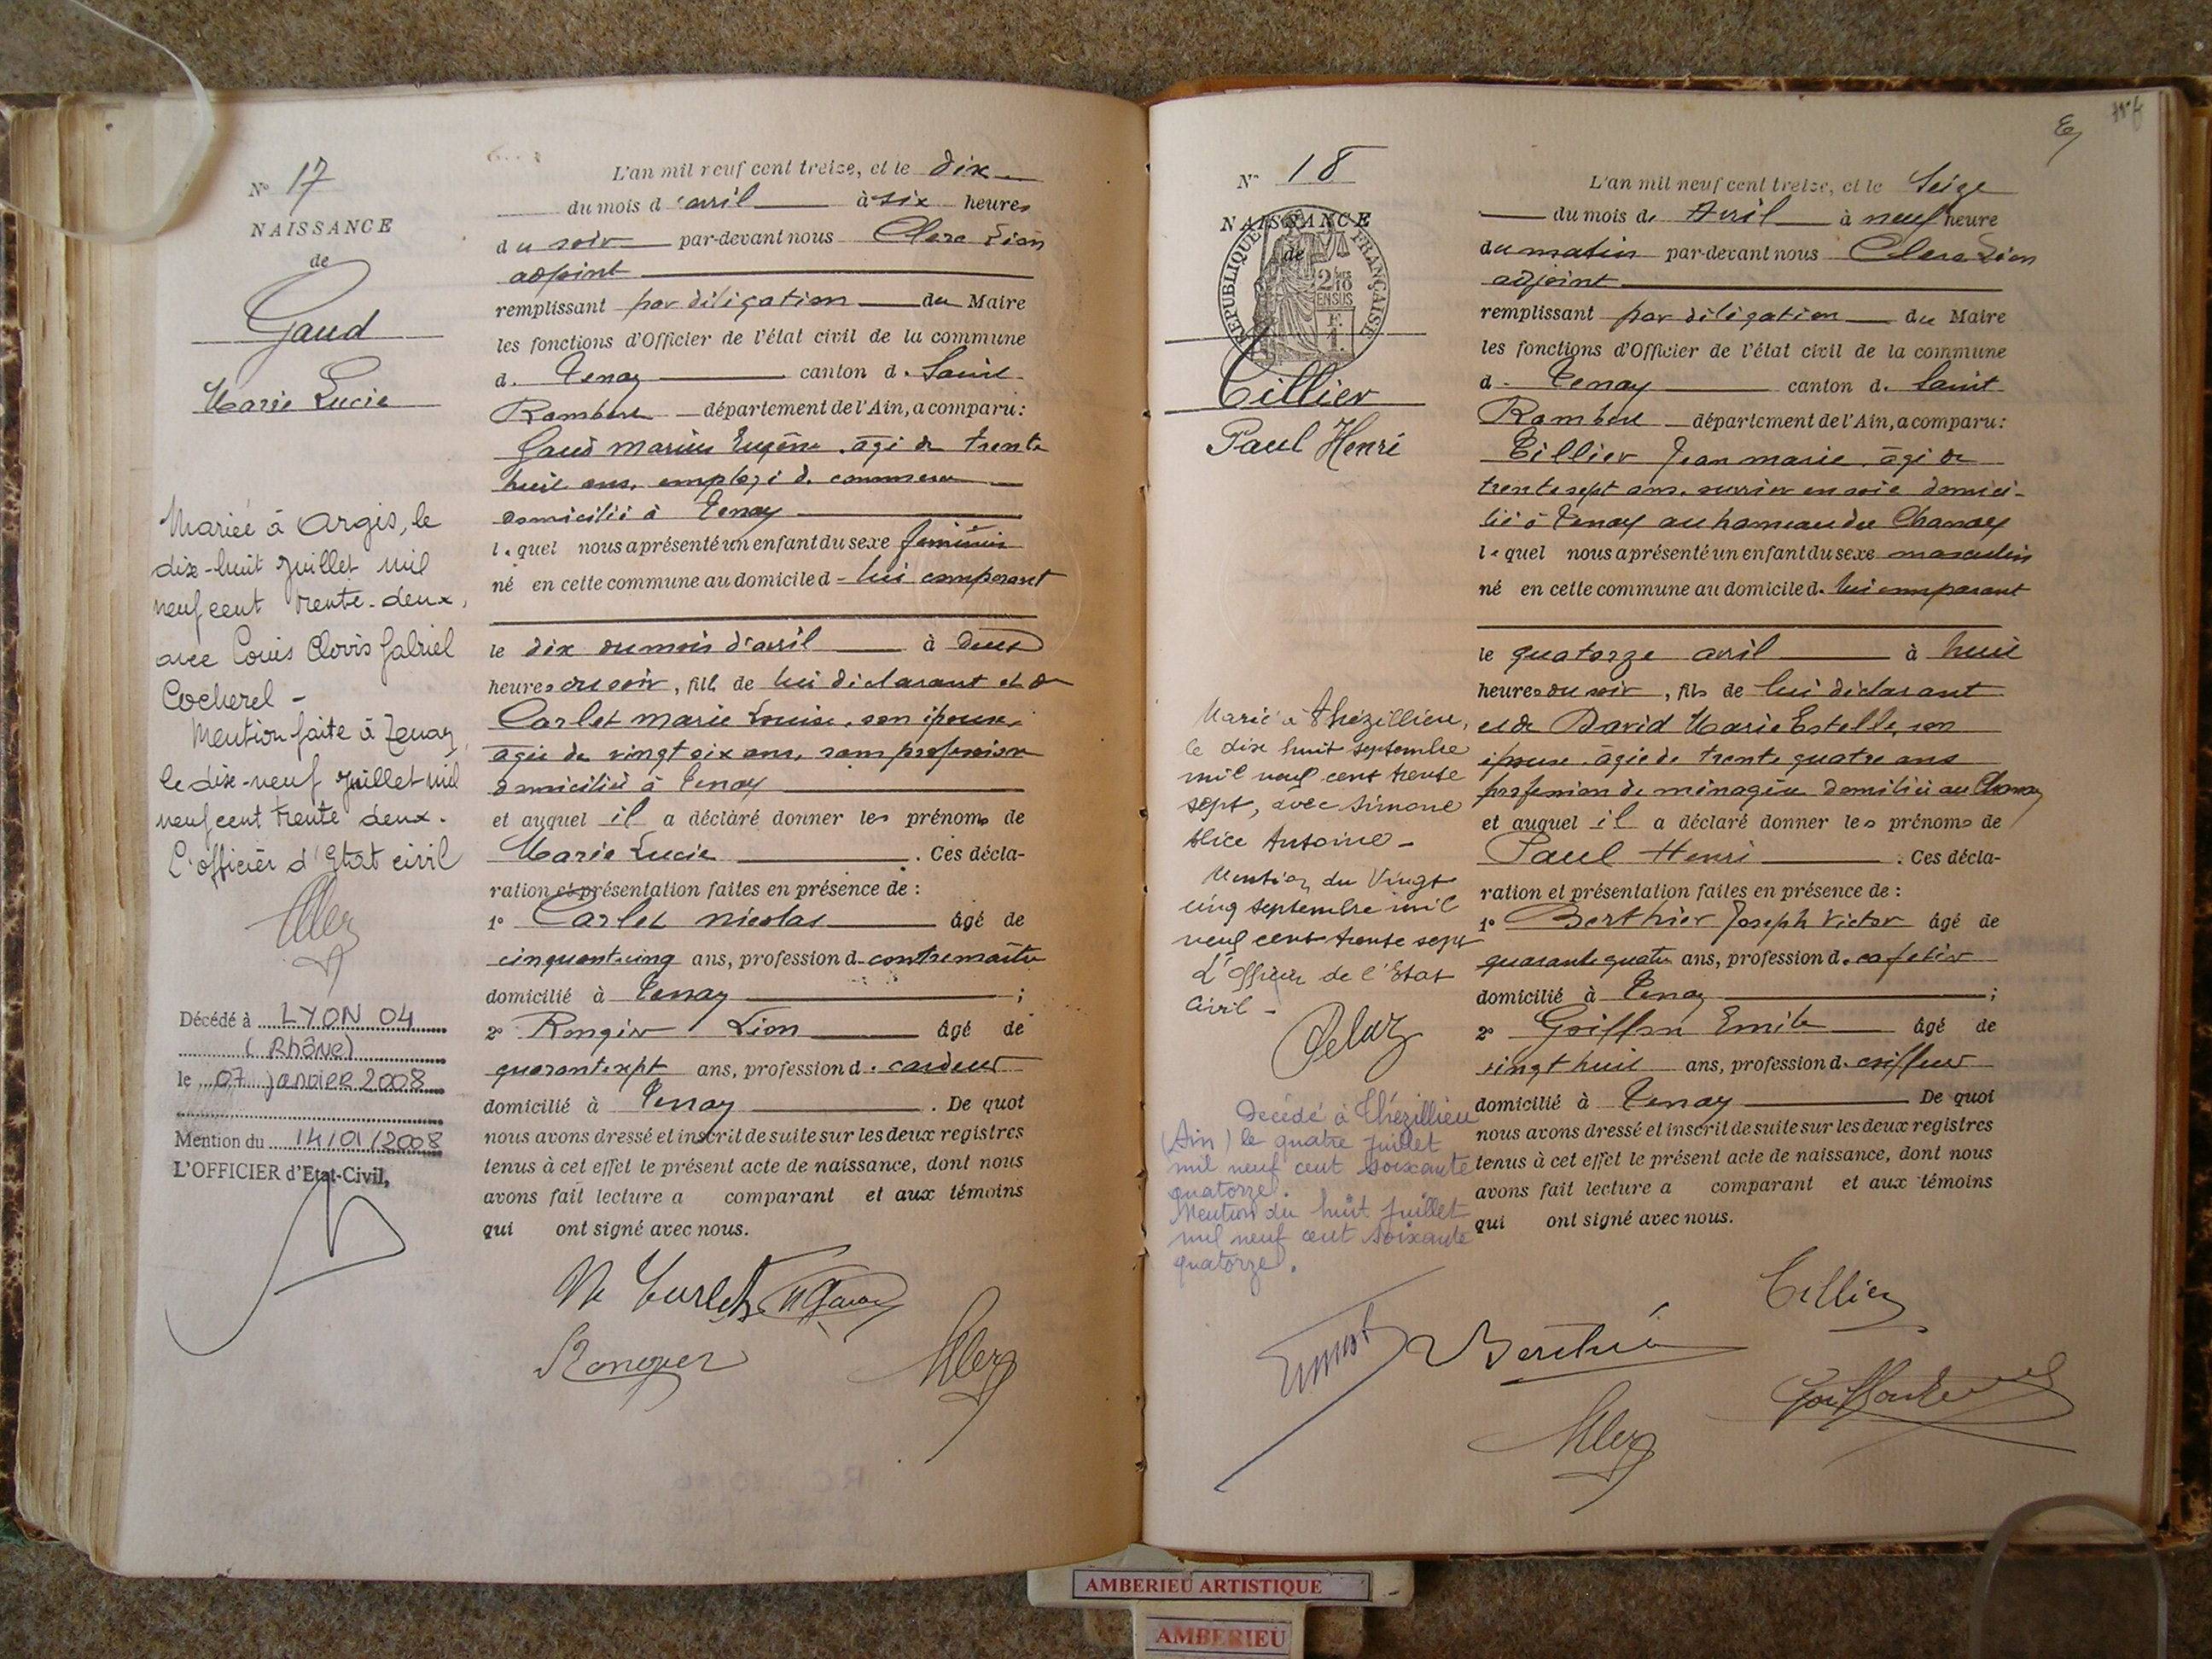 N° 17
NAISSANCE
de
Gaud
Marie Lucie
Mariée à Argis, le
dix-huit juillet mil
neuf cent trente-deux,
avec Louis Clovis Gabriel
Cocherel -
Mention faite à Tenay,
le dix-neuf juillet mil
neuf cent trente deux.
L'officier d'Etat civil
Décédé à LYON 04
(Rhône)
le 07 janvier 2008
Mention du 14/01/2008
L'OFFICIER d'Etat-Civil,
L'an mil neuf cent treize, et le dix
du mois d'avril à six heures
du soir par-devant nous Clerc Léon
adjoint
remplissant par délégation du Maire
les fonctions d'Officier de l'état civil de la commune
d. Tenay canton d. Saint
Rambert département de l'Ain, a comparu:
Gaud Marius Eugène, âgé de trente
huit ans, employé de commerce
domicilié à Tenay
lequel nous a présenté un enfant du sexe féminin
né en cette commune au domicile d- lui comparant
le dix du mois d'avril à deux
heures du soir, fille de lui déclarant et de
Carlet Marie Louise, son épouse,
âgée de vingt six ans, sans profession
domiciliée à Tenay
et auquel il a déclaré donner les prénoms de
Marie Lucie . Ces décla-
ration et présentation faites en présence de :
1° Carlet Nicolas âgé de
cinquante cinq ans, profession d. contremaître
domicilié à Tenay ;
2° Rongier Léon âgé de
quarante sept ans, profession d. cardeur
domicilié à Tenay . De quoi
nous avons dressé et inscrit de suite sur les deux registres
tenus à cet effet le présent acte de naissance, dont nous
avons fait lecture a comparant et aux témoins
qui ont signé avec nous.
N° 18
NAISSANCE
de
REPUBLIQUE FRANÇAISE
2/10
EN SUS
Tillier
Paul Henri
Marié à Thézillieu,
le dix huit septembre
mil neuf cent trente
sept, avec Simone
Alice Antoine -
Mention du Vingt
cinq septembre mil
neuf cent trente sept
L'Officier de l'Etat
Civil -
Décédé à Thézillieu
(Ain) le quatre juillet
mil neuf cent soixante
quatorze.
Mention du huit juillet
mil neuf cent soixante
quatorze.
L'an mil neuf cent treize, et le seize
du mois de Avril à neuf heure
du matin par-devant nous Clerc Léon
adjoint
remplissant par délégation du Maire
les fonctions d'Officier de l'état civil de la commune
d- Tenay canton d. Saint
Rambert département de l'Ain, a comparu:
Tillier Jean Marie, âgé de
trente sept ans, ouvrier en soie domici-
lié à Tenay au hameau du Chanay
lequel nous a présenté un enfant du sexe masculin
né en cette commune au domicile d. lui comparant
le quatorze avril à huit
heures du soir, fils de lui déclarant
et de David Marie Estelle, son
épouse, âgée de trente quatre ans
profession de ménagère domiciliée au Chanay
et auquel il a déclaré donner les prénoms de
Paul Henri . Ces décla-
ration et présentation faites en présence de :
1° Berthier Joseph Victor âgé de
quarante quatre ans, profession d. cafetier
domicilié à Tenay ;
2° Goiffon Emile âgé de
vingt huit ans, profession d. coiffeur
domicilié à Tenay De quoi
nous avons dressé et inscrit de suite sur les deux registres
tenus à cet effet le présent acte de naissance, dont nous
avons fait lecture a comparant et aux témoins
qui ont signé avec nous.
Tillier
AMBERIEU ARTISTIQUE
AMBERIEU